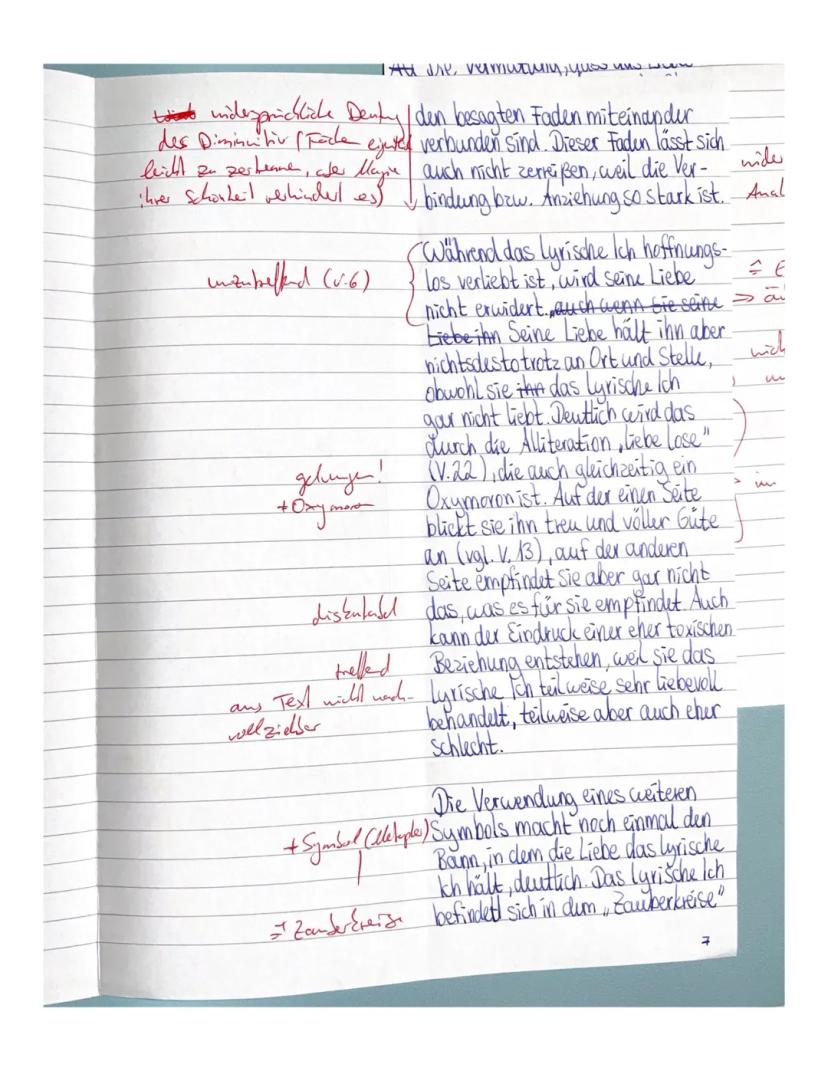 den besagten Faden miteinander
verbunden sind. Dieser Faden lässt sich
auch nicht zerreißen, weil die Ver-
bindung bzw. Anziehung so stark ist.
widersprüchliche Deutung
des Diminutiv (Fäden eigentl
leicht zu zertrennen, aber Magie
ihrer Schönheit verhindert es)
Während das lyrische Ich hoffnungs-
los verliebt ist, wird seine Liebe
nicht erwidert, auch wenn sie seine
Liebe ihn Seine Liebe hält ihn aber
nichtsdestotrotz an Ort und Stelle,
obwohl sie ihn das lyrische Ich
gar nicht liebt. Deutlich wird das
durch die Alliteration „liebe lose"
(V.22), die auch gleichzeitig ein
Oxymoron ist. Auf der einen Seite
blickt sie ihn treu und voller Güte
an (vgl. V. 13), auf der anderen
Seite empfindet sie aber gar nicht
das, was es für sie empfindet. Auch
kann der Eindruck einer eher toxischen
Beziehung entstehen, weil sie das
lyrische Ich teilweise sehr liebevoll
behandelt, teilweise aber auch eher
schlecht.
unzutreffend (V.6)
gelungen!
+ Oxymoron
diskutabel
treffend
aus Text nicht nach-
vollziehbar
Die Verwendung eines weiteren
Symbols macht noch einmal den
Bann, in dem die Liebe das lyrische
Ich hält, deutlich. Das lyrische Ich
befindet sich in dem „Zauberkreise"
+ Symbol (Metapher)
= Zauberkreise
7